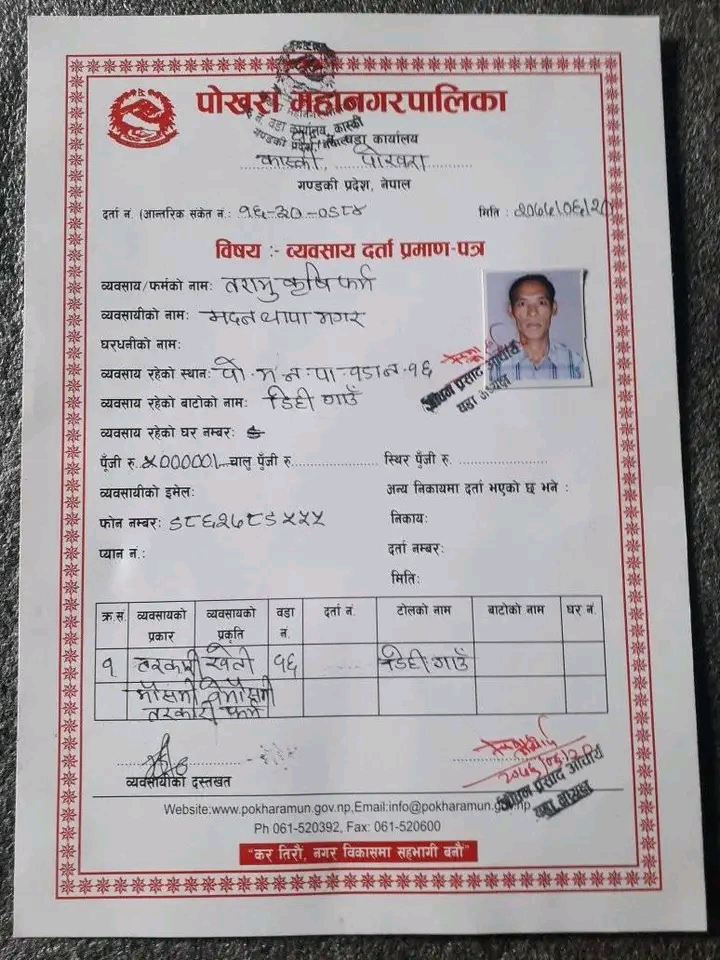 पोखरा महानगरपालिका
वडा कार्यालय, कास्की
गण्डकी प्रदेश, वडा कार्यालय
कास्की, पोखरा
गण्डकी प्रदेश, नेपाल
दर्ता नं. (आन्तरिक संकेत नं.: मिति :
विषय :- व्यवसाय दर्ता प्रमाण-पत्र
व्यवसाय/फर्मको नाम: कृषि फर्म
व्यवसायीको नाम: मदन थापा मगर
घरधनीको नाम:
व्यवसाय रहेको स्थान: पो.म.न.पा वडा नं. १६
व्यवसाय रहेको बाटोको नाम: डिही गाउँ
व्यवसाय रहेको घर नम्बर:
पूँजी रु. ५०००००।- चालु पूँजी रु. स्थिर पूँजी रु.
व्यवसायीको इमेल: अन्य निकायमा दर्ता भएको छ भने :
फोन नम्बर: निकाय:
प्यान नं.: दर्ता नम्बर:
मिति:
प्रसाद आचार्य
वडा अध्यक्ष
क्र.सं. व्यवसायको प्रकार व्यवसायको प्रकृति वडा नं. दर्ता नं. टोलको नाम बाटोको नाम घर नं.
१ तरकारी खेती १६ डिही गाउँ
मौसमी बेमौसमी
तरकारी फर्म
व्यवसायीको दस्तखत
प्रसाद आचार्य
वडा अध्यक्ष
Website:www.pokharamun.gov.np,Email:info@pokharamun.gov.np
Ph 061-520392, Fax: 061-520600
"कर तिरौं, नगर विकासमा सहभागी बनौं"